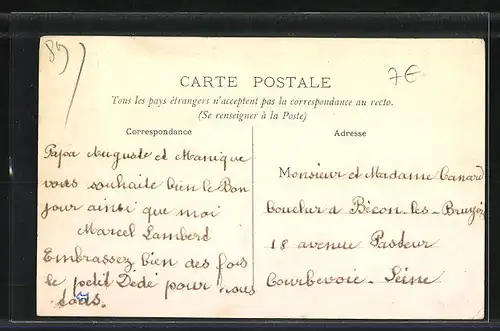 89
7€
CARTE POSTALE
Tous les pays étrangers n'acceptent pas la correspondance au recto.
(Se renseigner à la Poste)
Correspondance
Adresse
Papa Auguste et Manique
vous souhaite bien le Bon
jour ainsi que moi
Marcel Lambert
Embrassez bien des fois
le petit Dédé pour nous
tous.
Monsieur et Madame Canard
boucher a Bécon-les-Bruyèr
18 avenue Pasteur
Courbevoie. Seine